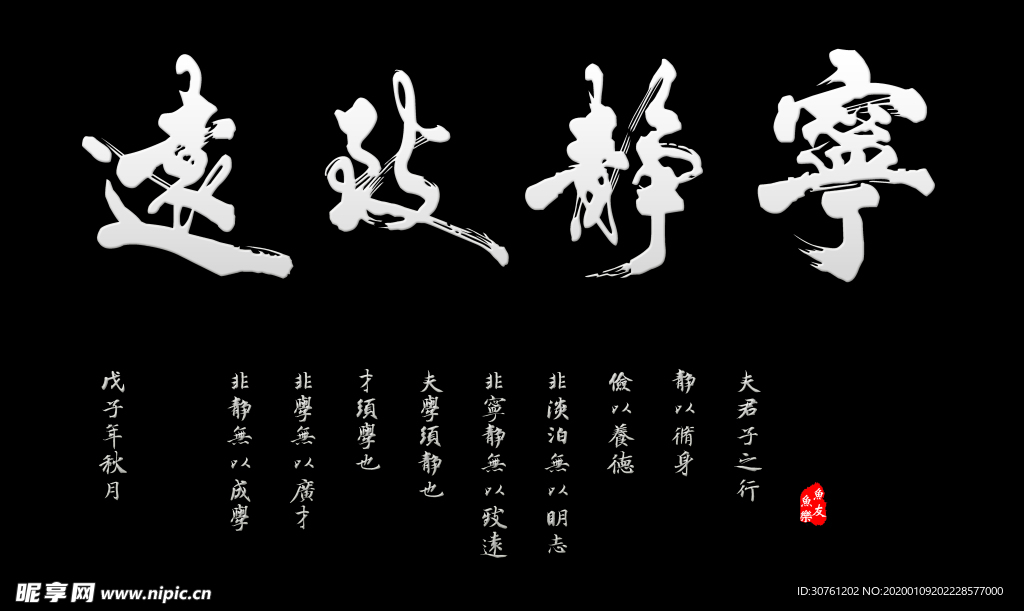 寧靜致遠
夫君子之行
静以脩身
儉以養德
非淡泊無以明志
非寧静無以致遠
夫學須静也
才須學也
非學無以廣才
非静無以成學
戊子年秋月
魚友
魚樂
昵享网 www.nipic.cn
ID:30761202 NO:20200109202228577000